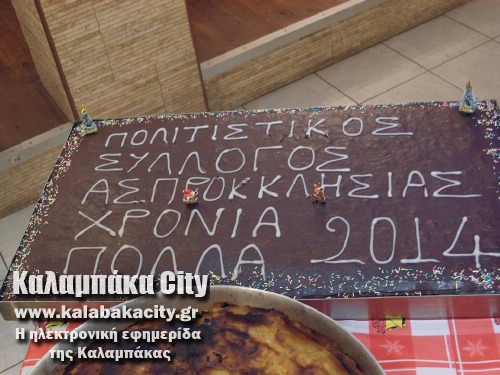 ΠΟΛΙΤΙΣΤΙΚΟΣ
ΣΥΛΛΟΓΟΣ
ΑΣΠΡΟΚΚΛΗΣΙΑΣ
ΧΡΟΝΙΑ
ΠΟΛΛΑ 2014
Καλαμπάκα City
www.kalabakacity.gr
Η ηλεκτρονική εφημερίδα
της Καλαμπάκας